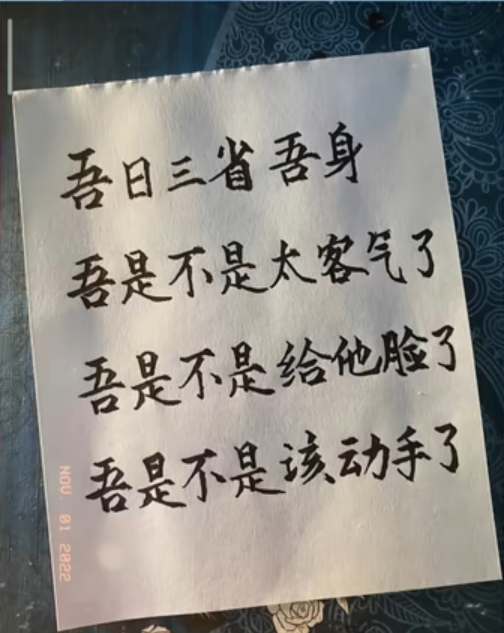 吾日三省吾身
吾是不是太客气了
吾是不是给他脸了
吾是不是该动手了
NOV. 01 2022